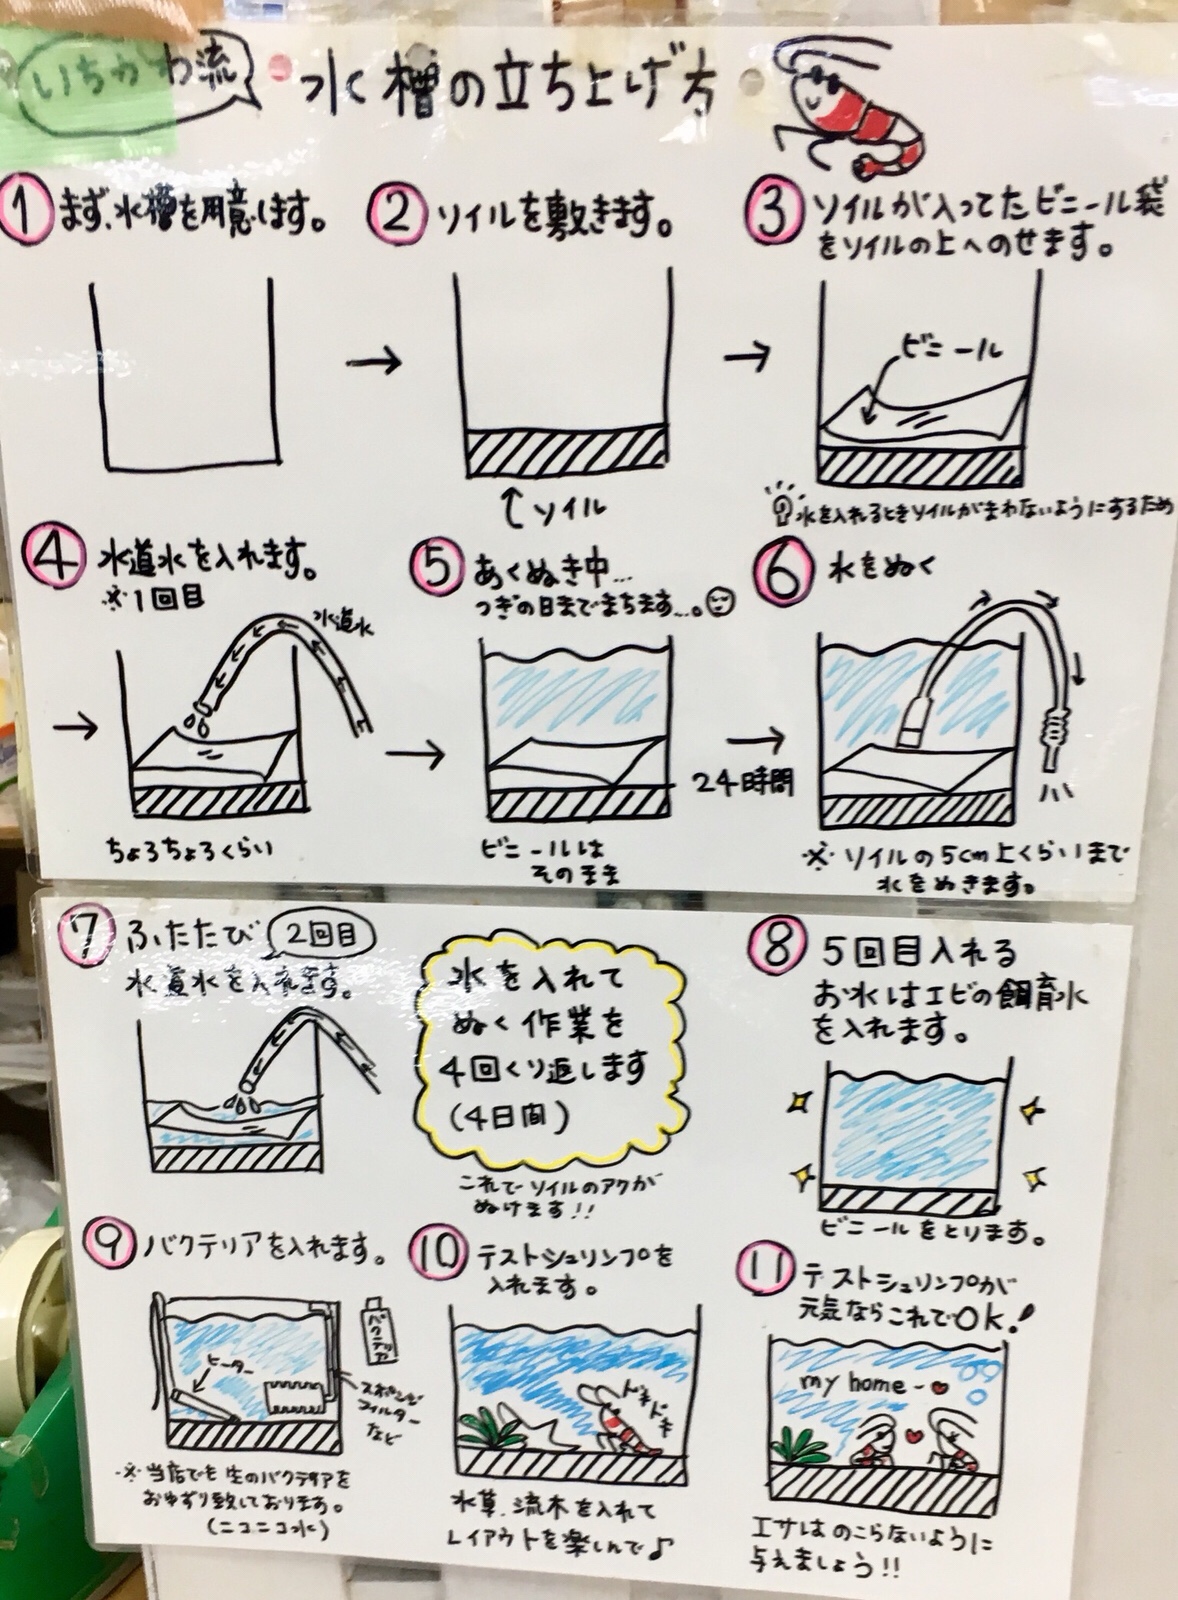 いちかわ流
水槽の立ち上げ方
① まず、水槽を用意します。
② ソイルを敷きます。
↑ソイル
③ ソイルが入ってたビニール袋
をソイルの上へのせます。
ビニール
水を入れるときソイルがまわないようにするため
④ 水道水を入れます。
※1回目
水道水
ちょろちょろくらい
⑤ あくぬき中…
つぎの日までまちます…。
ビニールは
そのまま
24時間
⑥ 水をぬく
※ ソイルの5cm上くらいまで
水をぬきます。
⑦ ふたたび 2回目
水道水を入れます。
水を入れて
ぬく作業を
4回くり返します
(4日間)
これでソイルのアクが
ぬけます!!
⑧ 5回目入れる
お水はエビの飼育水
を入れます。
ビニールをとります。
⑨ バクテリアを入れます。
バクテリア
ヒーター
スポンジ
フィルター
など
※当店でも生のバクテリアを
おゆずり致しております。
(ニコニコ水)
⑩ テストシュリンプを
入れます。
ドキドキ
水草、流木を入れて
レイアウトを楽しんで♪
⑪ テストシュリンプが
元気ならこれでOK!
my home-♥
エサはのこらないように
与えましょう!!